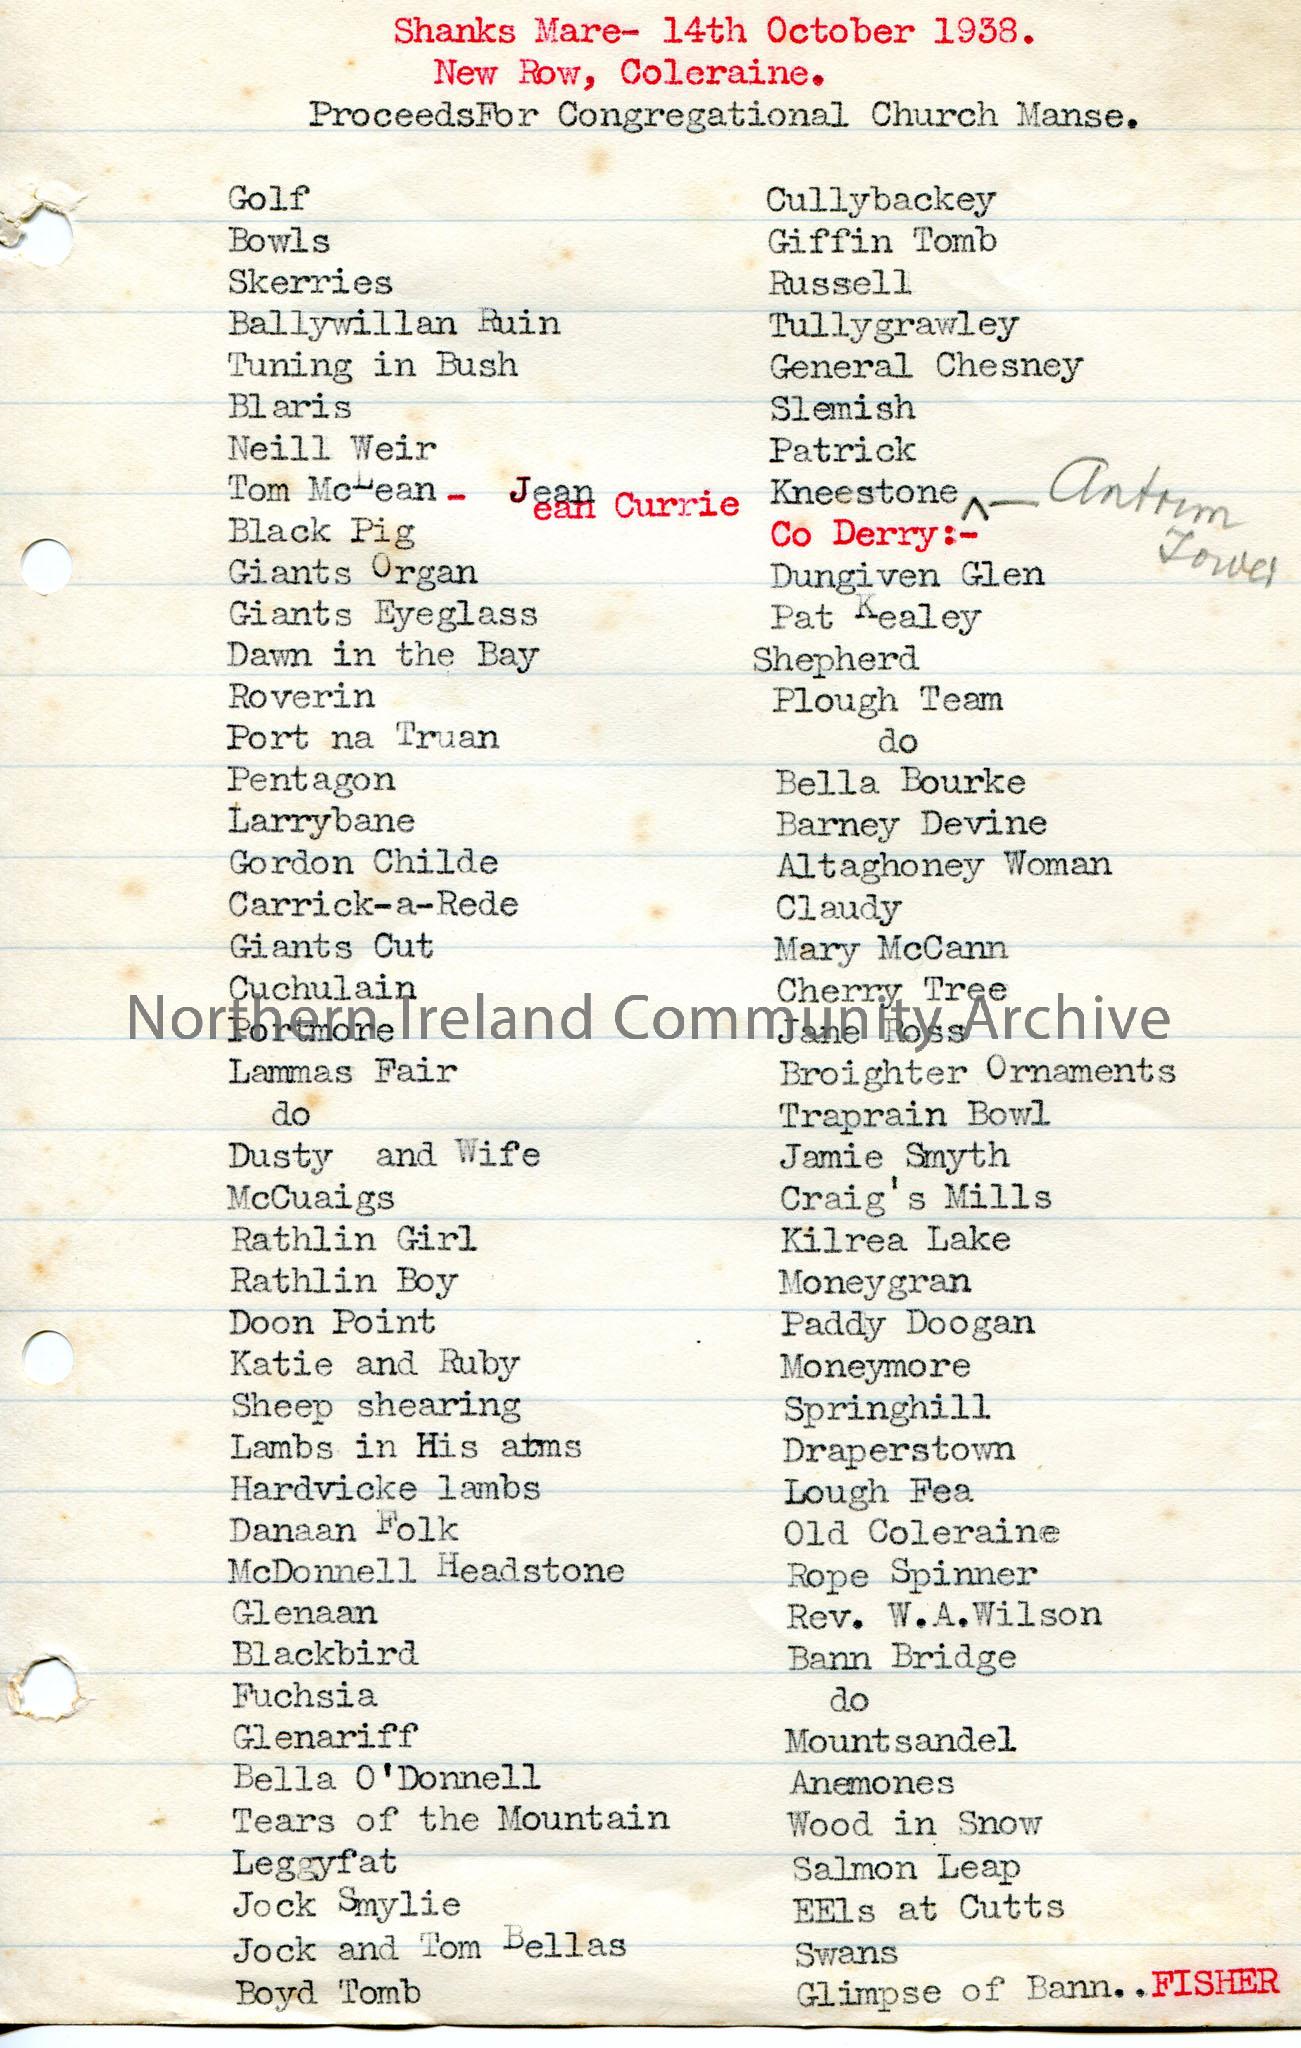 Shanks Mare- 14th October 1938.
New Row, Coleraine.
ProceedsFor Congregational Church Manse.
Golf
Bowls
Skerries
Ballywillan Ruin
Tuning in Bush
Blaris
Neill Weir
Tom McLean - Jean
ean Currie
Black Pig
Giants Organ
Giants Eyeglass
Dawn in the Bay
Roverin
Port na Truan
Pentagon
Larrybane
Gordon Childe
Carrick-a-Rede
Giants Cut
Cuchulain
Portmore
Lammas Fair
do
Dusty and Wife
McCuaigs
Rathlin Girl
Rathlin Boy
Doon Point
Katie and Ruby
Sheep shearing
Lambs in His atms
Hardvicke lambs
Danaan Folk
McDonnell Headstone
Glenaan
Blackbird
Fuchsia
Glenariff
Bella O'Donnell
Tears of the Mountain
Leggyfat
Jock Smylie
Jock and Tom Bellas
Boyd Tomb
Cullybackey
Giffin Tomb
Russell
Tullygrawley
General Chesney
Slemish
Patrick
Kneestone ^ — Antrim
Tower
Co Derry:-
Dungiven Glen
Pat Kealey
Shepherd
Plough Team
do
Bella Bourke
Barney Devine
Altaghoney Woman
Claudy
Mary McCann
Cherry Tree
Jane Ross
Broighter Ornaments
Traprain Bowl
Jamie Smyth
Craig's Mills
Kilrea Lake
Moneygran
Paddy Doogan
Moneymore
Springhill
Draperstown
Lough Fea
Old Coleraine
Rope Spinner
Rev. W.A.Wilson
Bann Bridge
do
Mountsandel
Anemones
Wood in Snow
Salmon Leap
EEls at Cutts
Swans
Glimpse of Bann..FISHER
Northern Ireland Community Archive